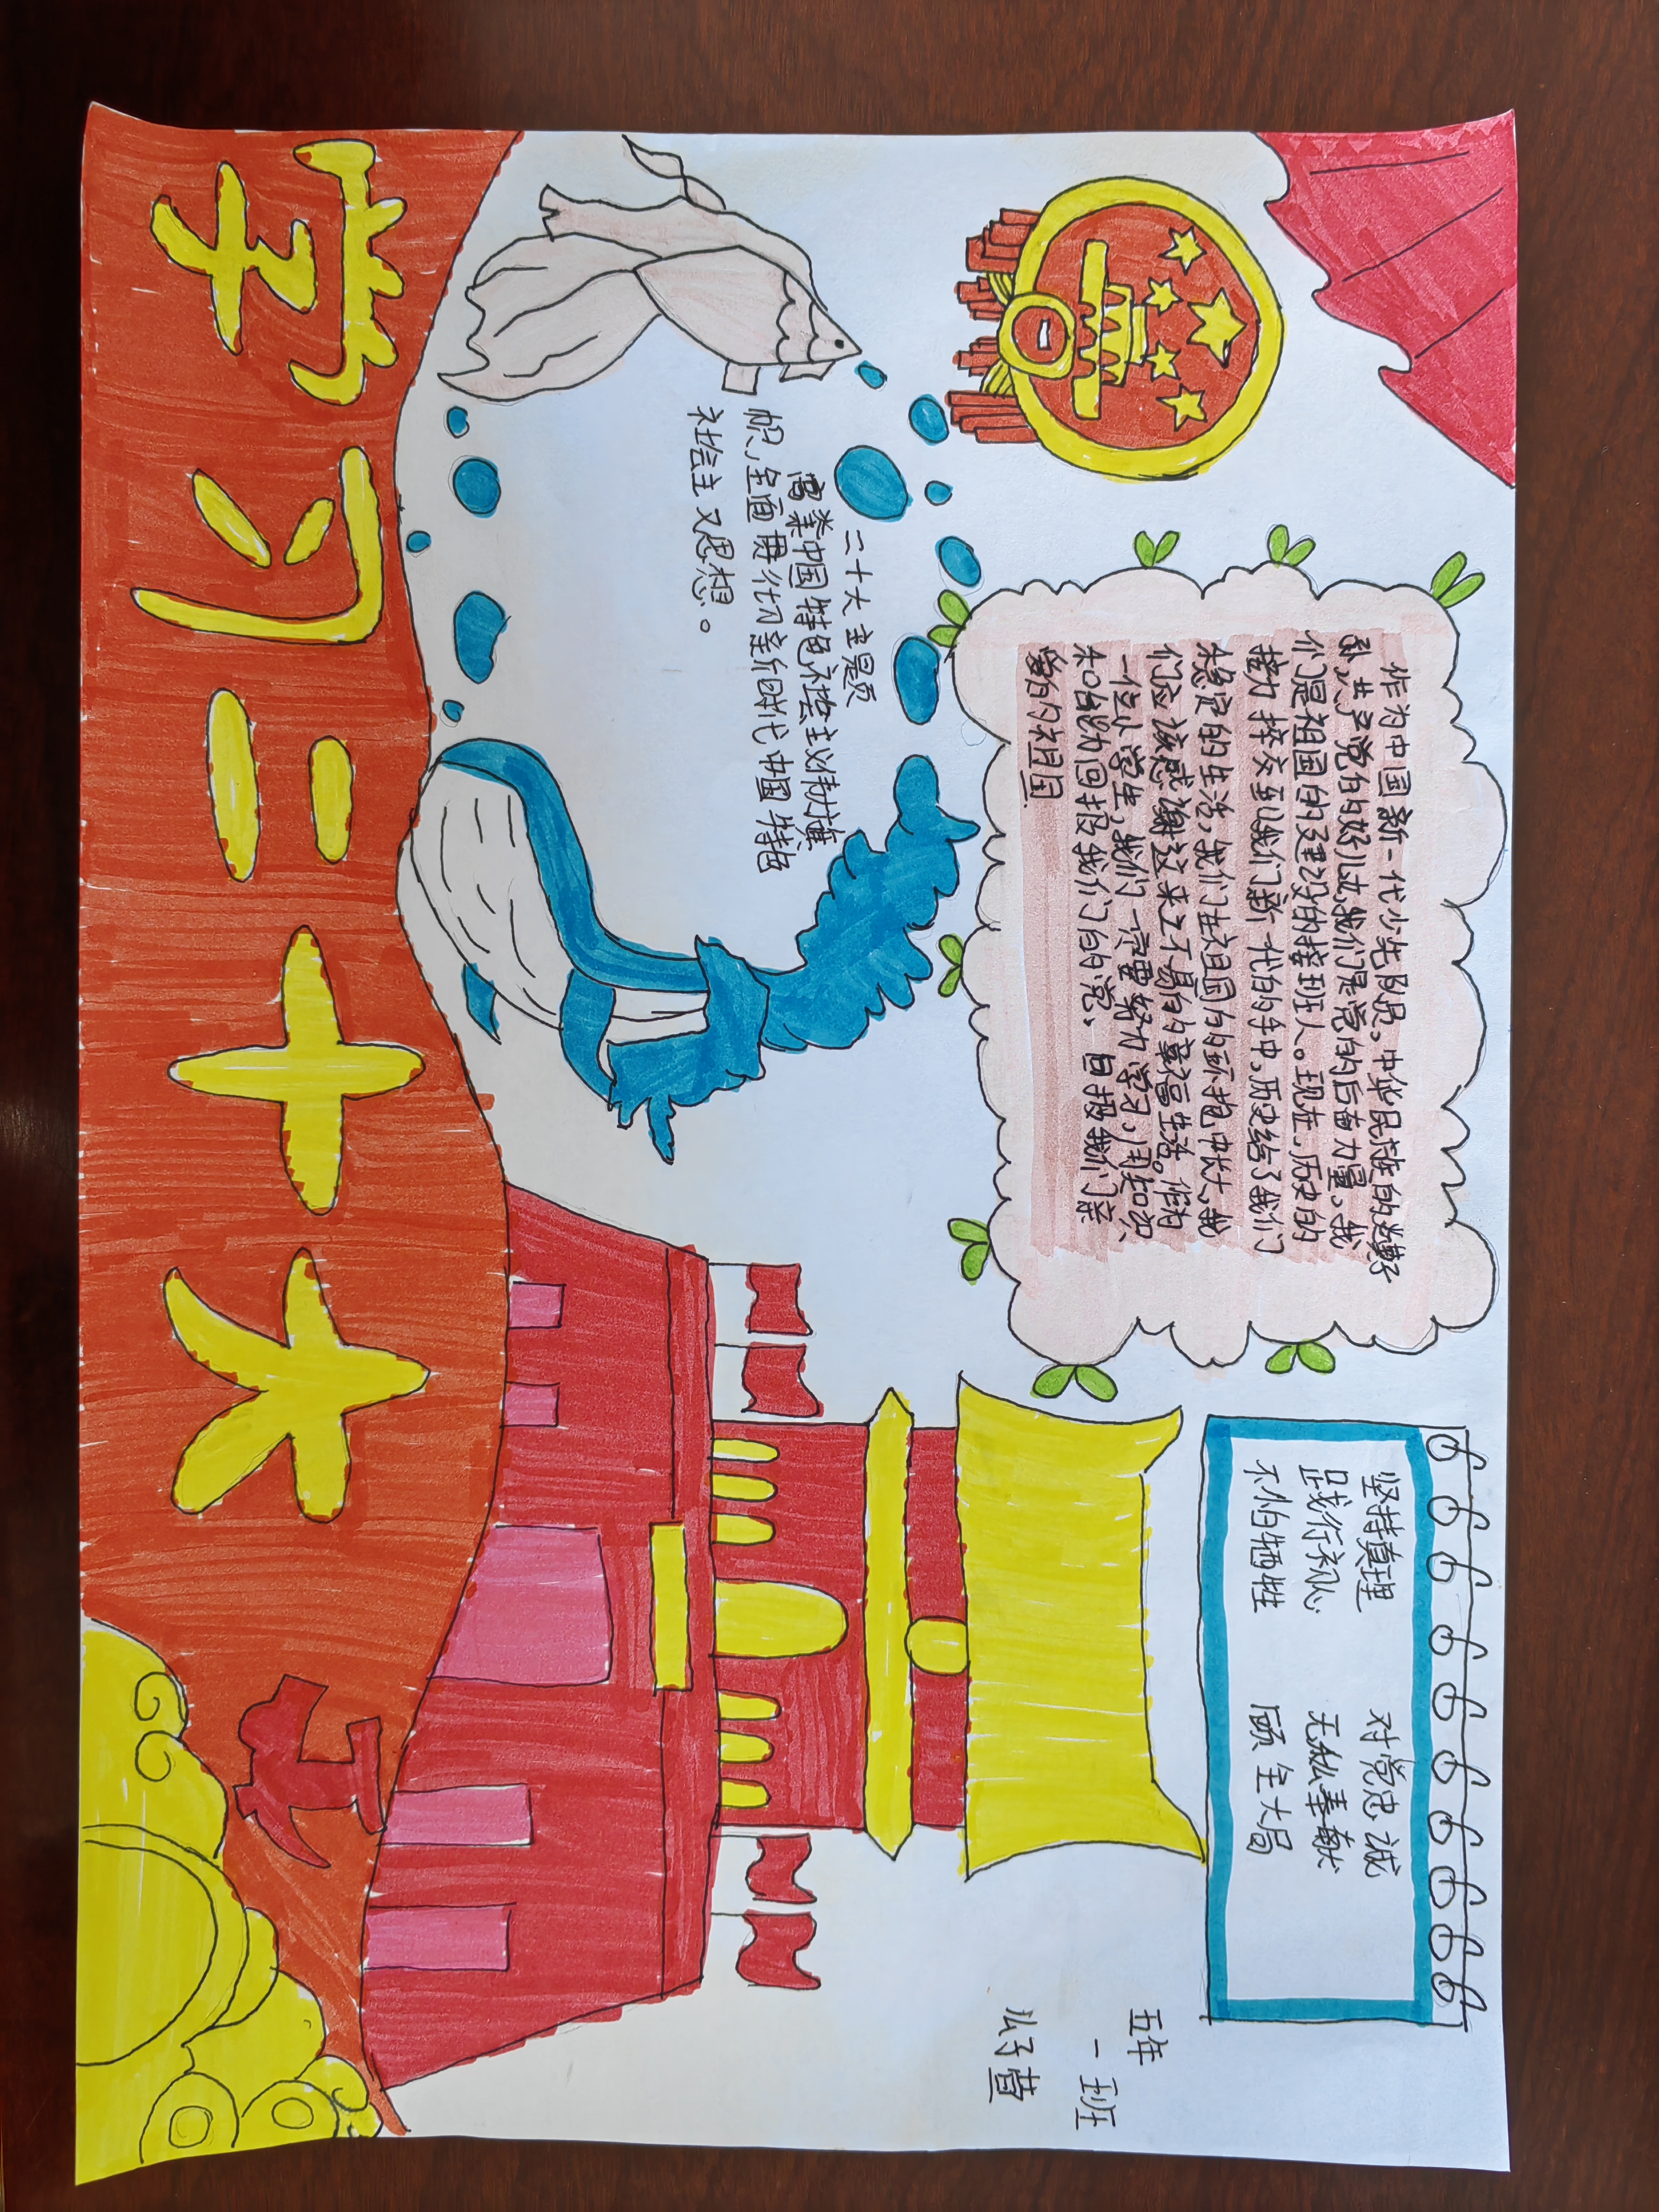 作为中国新一代少先队员。中华民族的
孙,共产党的好儿女,我们是党的后备力量,我
们是祖国的建设的接班人。现在,历史的
接力棒交到我们新一代的手中,历史给了我们
稳定的生活,我们在祖国的环抱中长大,我
们应该感谢这来之不易的幸福生活。作为
一位小学生,我们一定要努力学习,用知识、
和能力回报我们的党、回报我们亲
爱的祖国
坚持真理 对党忠诚
践行初心 无私奉献
不怕牺牲 顾全大局
二十大主题
高举中国特色社会主义伟大旗
帜,全面贯彻新时代中国特色
社会主义思想。
五年
一班
学习二十大